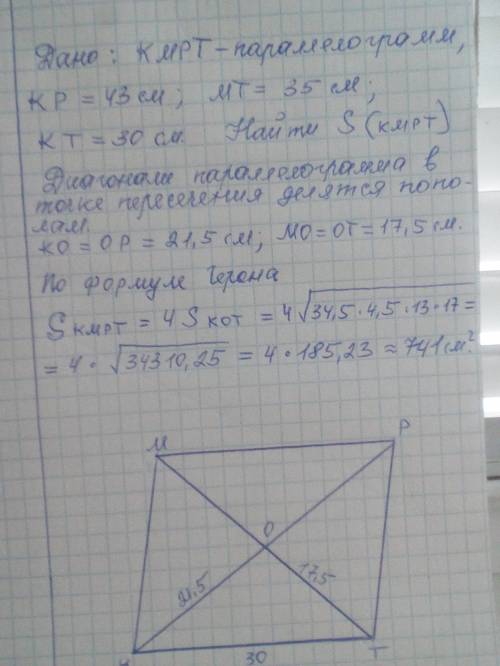 Дано: КМРТ-параллелограмм,
КР = 43 см; МТ = 35 см;
КТ = 30 см. Найти S (КМРТ)
Диагонали параллелограмма в
точке пересечения делятся попо-
лам.
КО = ОР = 21,5 см; МО = ОТ = 17,5 см.
По формуле Герона
S КМРТ = 4 S КОТ = 4 √34,5 · 4,5 · 13 · 17 =
= 4 · √34310,25 = 4 · 185,23 ≈ 741 см²
М
Р
О
21,5
17,5
К
30
Т